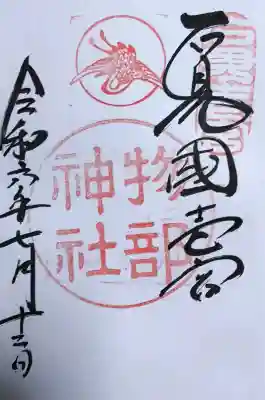 石見國一宮
物部
神社
令和六年七月十三日